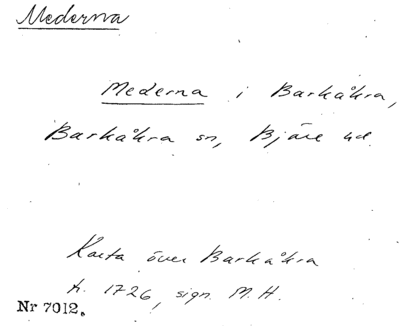 Mederna
Mederna i Barkåkra,
Barkåkra sn, Bjäre hd.
Karta över Barkåkra
fr. 1726, sign. M.H.
Nr 7012.